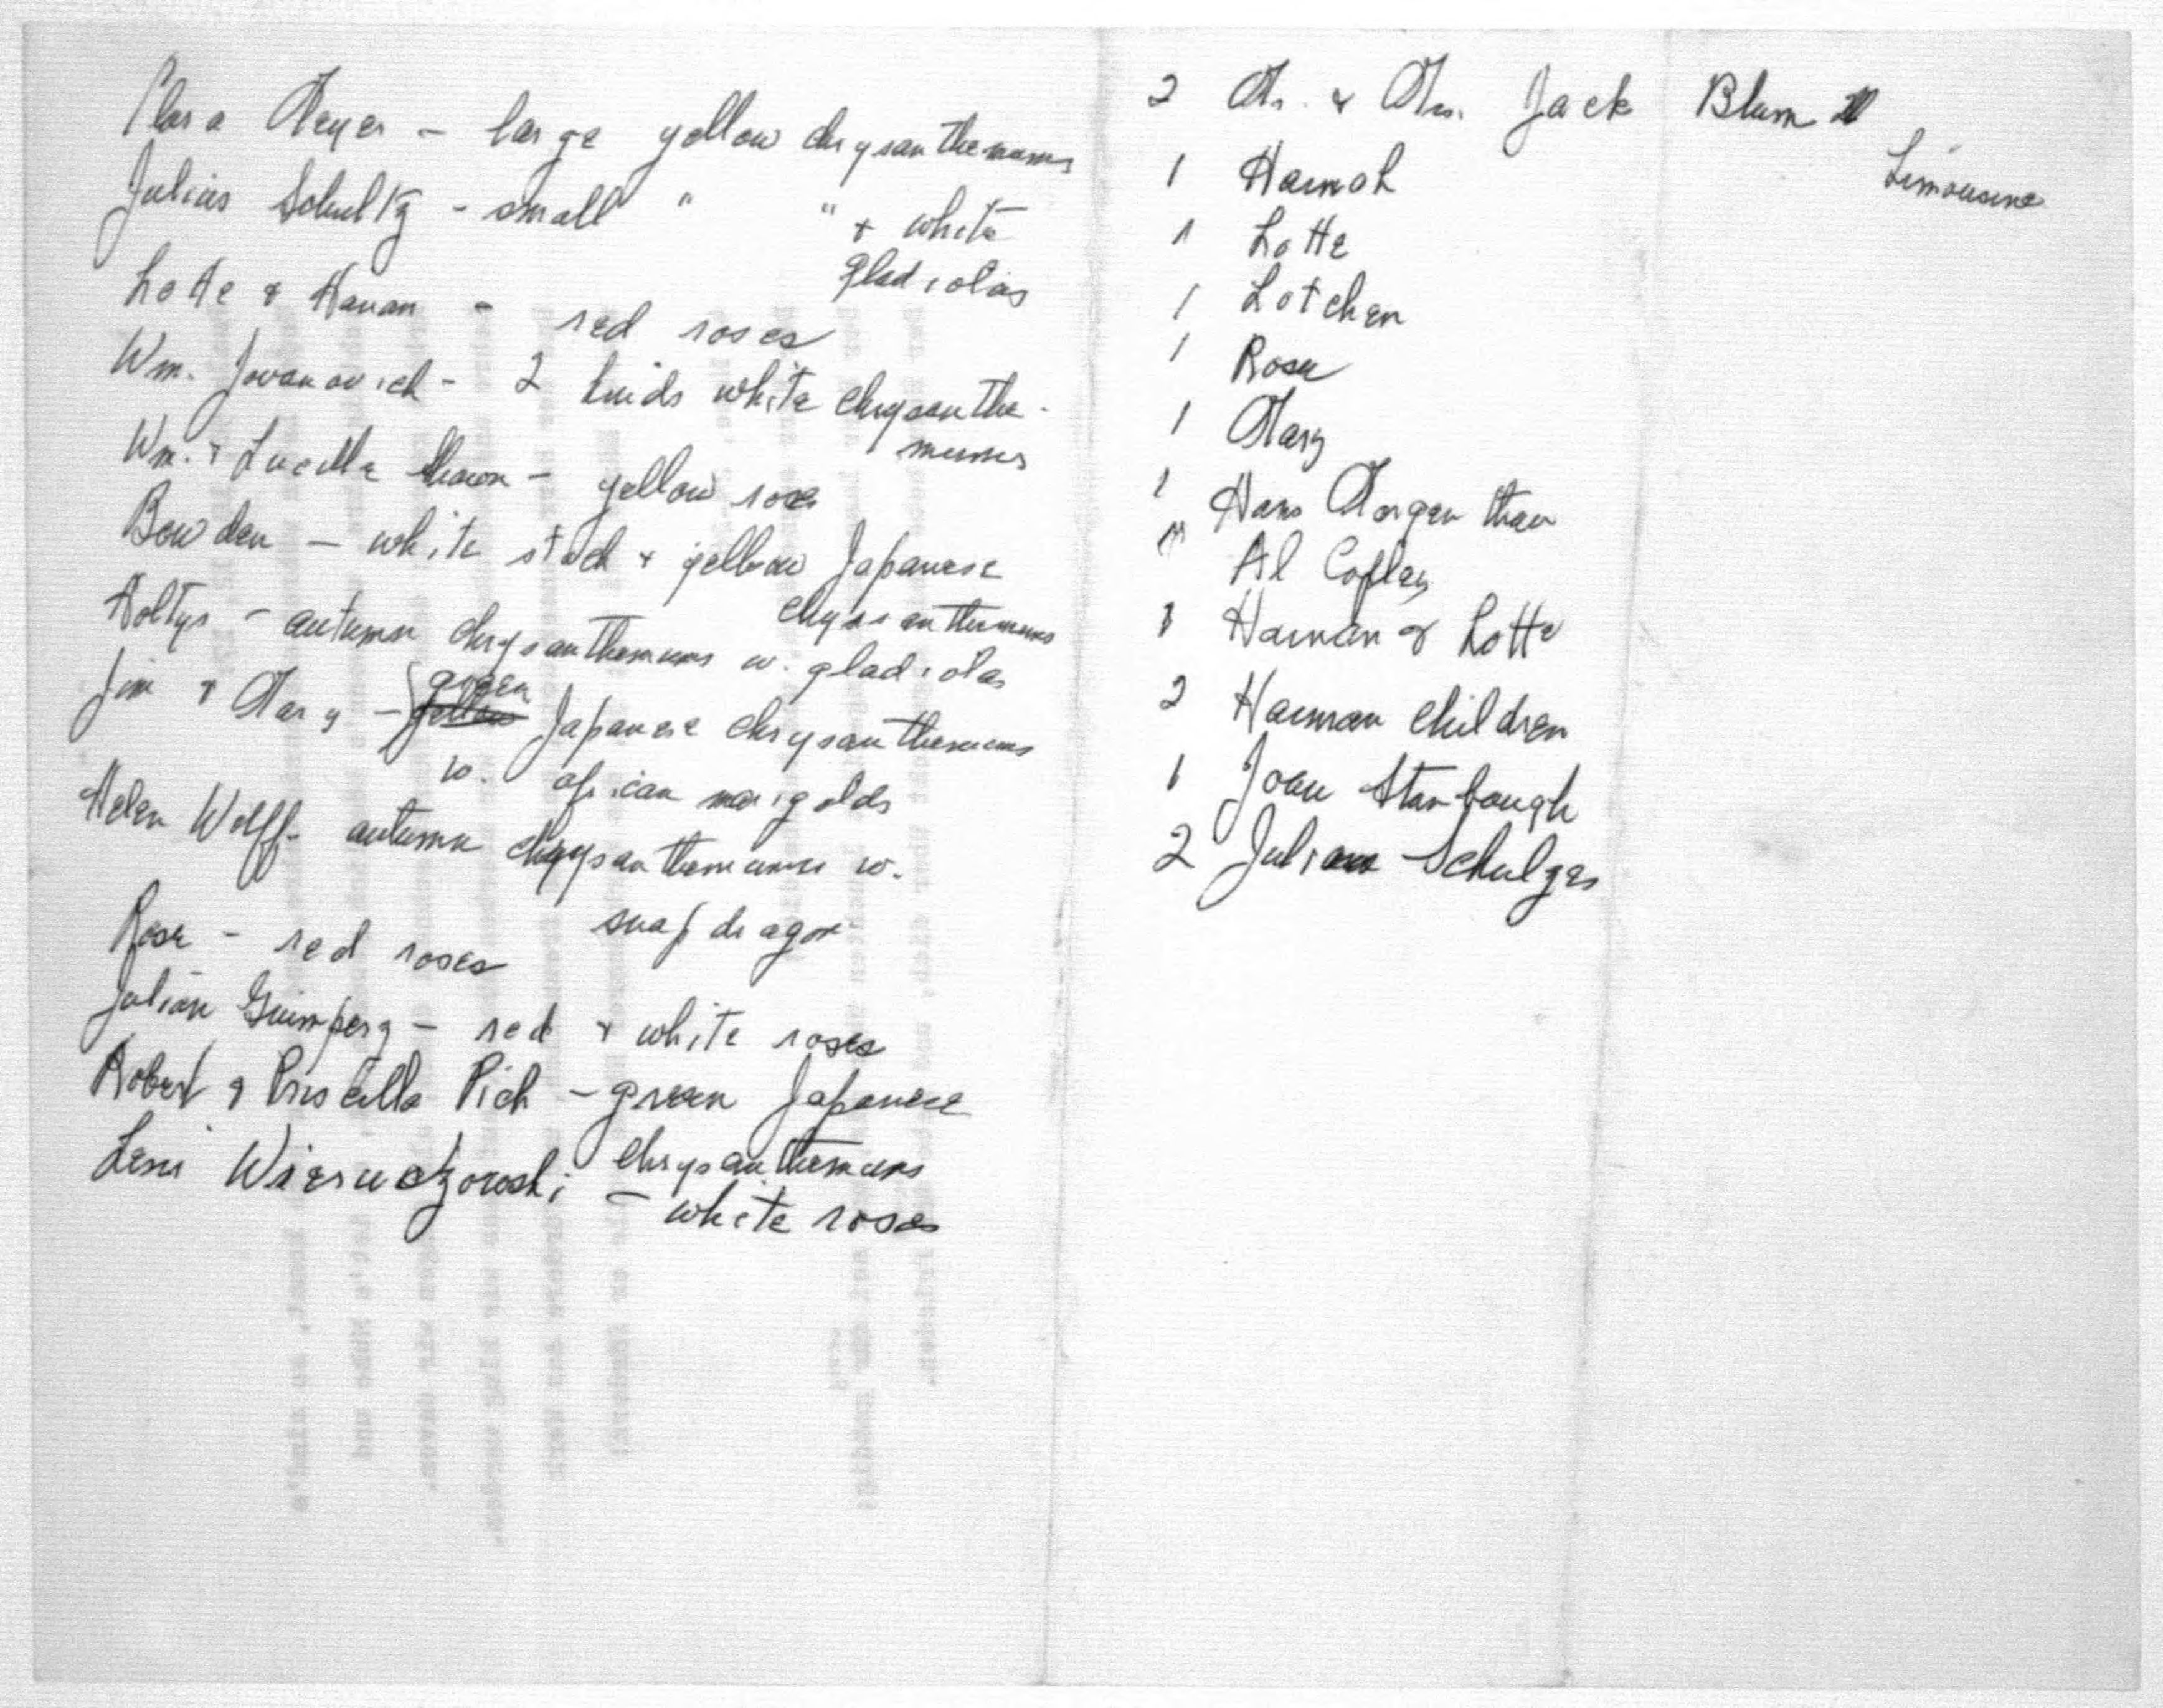 Clara Meyer - large yellow chrysanthemums
Julius Schultz - small " " + white
gladiolas
Lotte & Hanan - red roses
Wm. Jovanovich - 2 kinds white chrysanthe-
mums
Wm. & Lucille Shawn - yellow roses
Bowden - white stock + yellow Japanese
chrysanthemums
Holtys - autumn chrysanthemums w. gladiolas
green
Jim & Mary - yellow Japanese chrysanthemums
w. african marigolds
Helen Wolff - autumn chrysanthemums w.
snapdragon
Rose - red roses
Julian Gumperz - red & white roses
Robert & Priscilla Pick - green Japanese
chrysanthemums
Leni - white roses
2 Mr. & Mrs. Jack Blum
Limousine
1 Hannah
1 Lotte
1 Lotchen
1 Rose
1 Mary
1 Hans Morgenthau
Al Copley
Hannan & Lotte
2 Hannan children
1 Joan Stambaugh
2 Schulzes